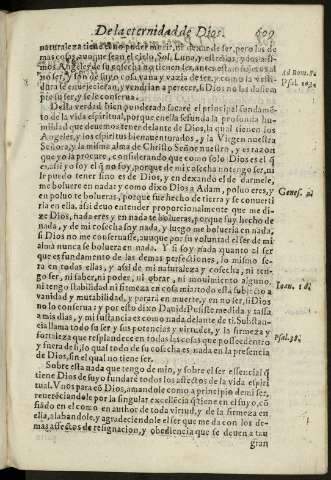 De la eternidad de Dios. 609
naturaleza tienen no poder morir, ni dexar de ser, pero las de
mas cosas, aunque sean el cielo, Sol, Luna, y estrellas, y los
mos Angeles de su cosecha no tienen ser, antes estan sujetos al
no ser, y son de suyo cosa vana y vazia de ser, y como la vesti
dura se enuejecieran, y vendrian a perecer, si Dios no las diesse
su ser, y se le conserua.
Desta verdad bien ponderada sacarè el principal fundamē
to de la vida espiritual, porque en ella se funda la profunda hu
mildad que deuemos tener delante de Dios, la qual tienen los
Angeles, y los espiritus bienauenturados, y la Virgen nuestra
Señora, y la misma alma de Christo Señor nuestro, y es razon
que yo la procure, considerando que como solo Dios es el q̄
es, assi yo soy el q̄ no soy, porque de mi cosecha no tengo ser, ni
le puedo tener sino es de Dios, y en dexando el de darmele,
me boluere en nada: y como dixo Dios a Adam, poluo eres, y
en poluo te bolueras, porque fue hecho de tierra y se conuerti
ria en ella, assi deuo entender proporcionalmente que me di-
ze Dios, nada eres y en nada te bolueras, porque fuy hecho de
nada, y de mi cosecha soy nada, y luego me bolueria en nada,
si Dios no me conseruasse, aunque por su voluntad el ser de mi
alma nunca se boluera en nada. Y si soy nada quanto al ser
que es fundamento de las demas perfecciones, lo mismo se-
ra en todas ellas, y assi de mi naturaleza y cosecha, ni ten-
go ser, ni saber, ni poder, ni obrar, ni mouimiento alguno,
ni tengo stabilidad ni firmeza en cosa mia: todo està subjecto a
vanidad y mutabilidad, y pararà en muerte, y en no ser, si Dios
no lo conserua: y por esso dixo Dauid: Pusiste medida y tassa
a mis dias, y mi substancia es como nada delante de ti. Substan-
cia llama todo su ser y sus potencias y virtudes, y la firmeza y
fortaleza que resplandece en todas las cosas que posee dentro
y fuera de si, lo qual todo de su cosecha es nada en la presencia
de Dios, sin el qual no tiene ser.
Sobre esta nada que tengo de mio, y sobre el ser essencial q̄
tiene Dios de suyo fundarè todos los affectos de la vida espiri
tual. Vnos para cō Dios, amandole como a principio de mi ser,
reuerēciandole por la singular excellēcia q̄ tiene en el suyo, cō
fiādo en el como en author de toda virtud, y de la firmeza en
ella, alabandole, y agradeciendole el ser que me da con los de-
mas affectos de resignacion, y obediencia que se deuen a tan
gran
Ad Rom.
Psal. 101.
Genes.
Ioan. 18.
Psal. 38.